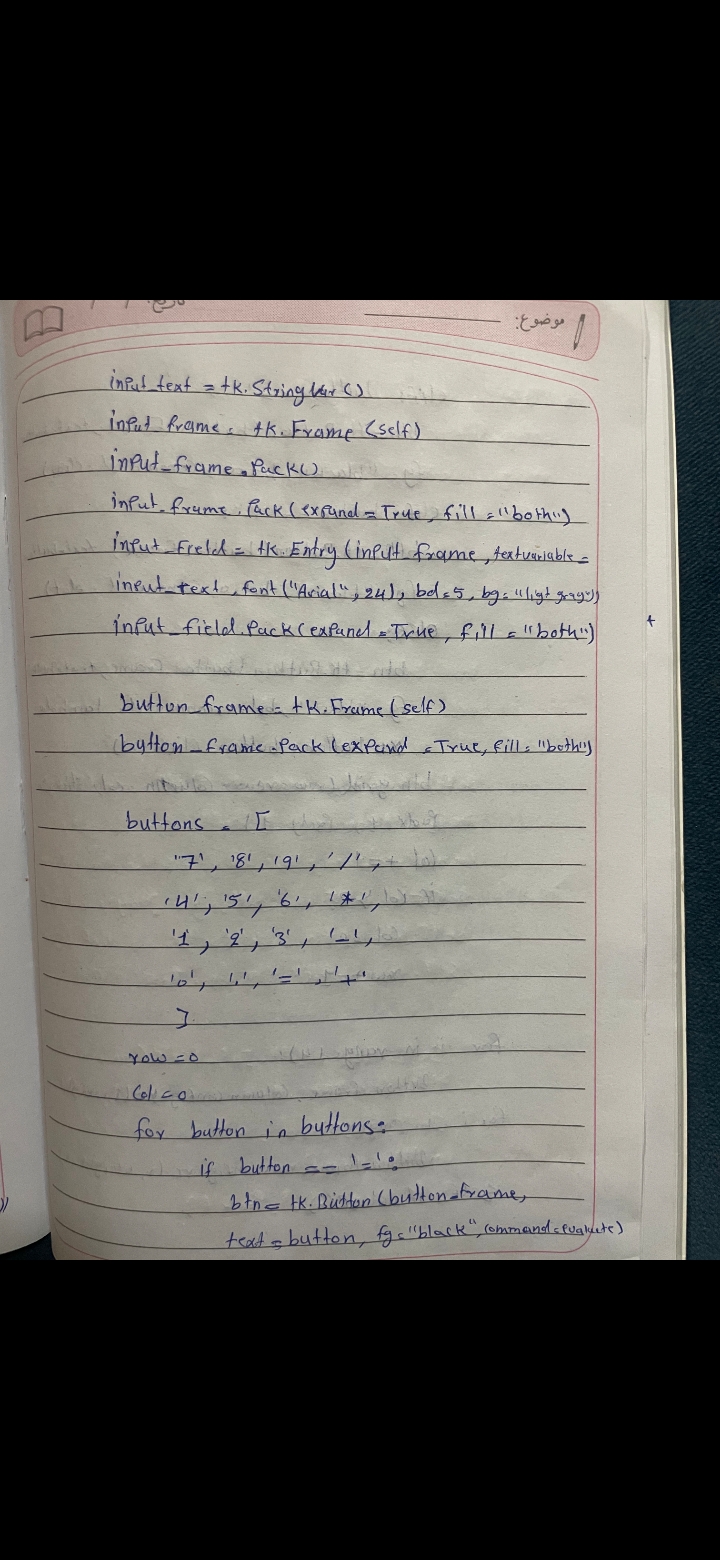 تاریخ: / /
موضوع:
input_text = tk.StringVar()
input_frame = tk.Frame(self)
input_frame.pack()
input_frame.pack(expand=True, fill="both")
input_field = tk.Entry(input_frame, textvariable=
input_text, font("Arial", 24), bd=5, bg="light gray"))
input_field.pack(expand=True, fill="both")
button_frame = tk.Frame(self)
button_frame.pack(expand=True, fill="both")
buttons = [
'7', '8', '9', '/',
'4', '5', '6', '*',
'1', '2', '3', '-',
'0', '.', '=', '+'
]
row=0
col=0
for button in buttons:
if button == '=':
btn = tk.Button(button_frame,
text=button, fg="black", command=evaluate)